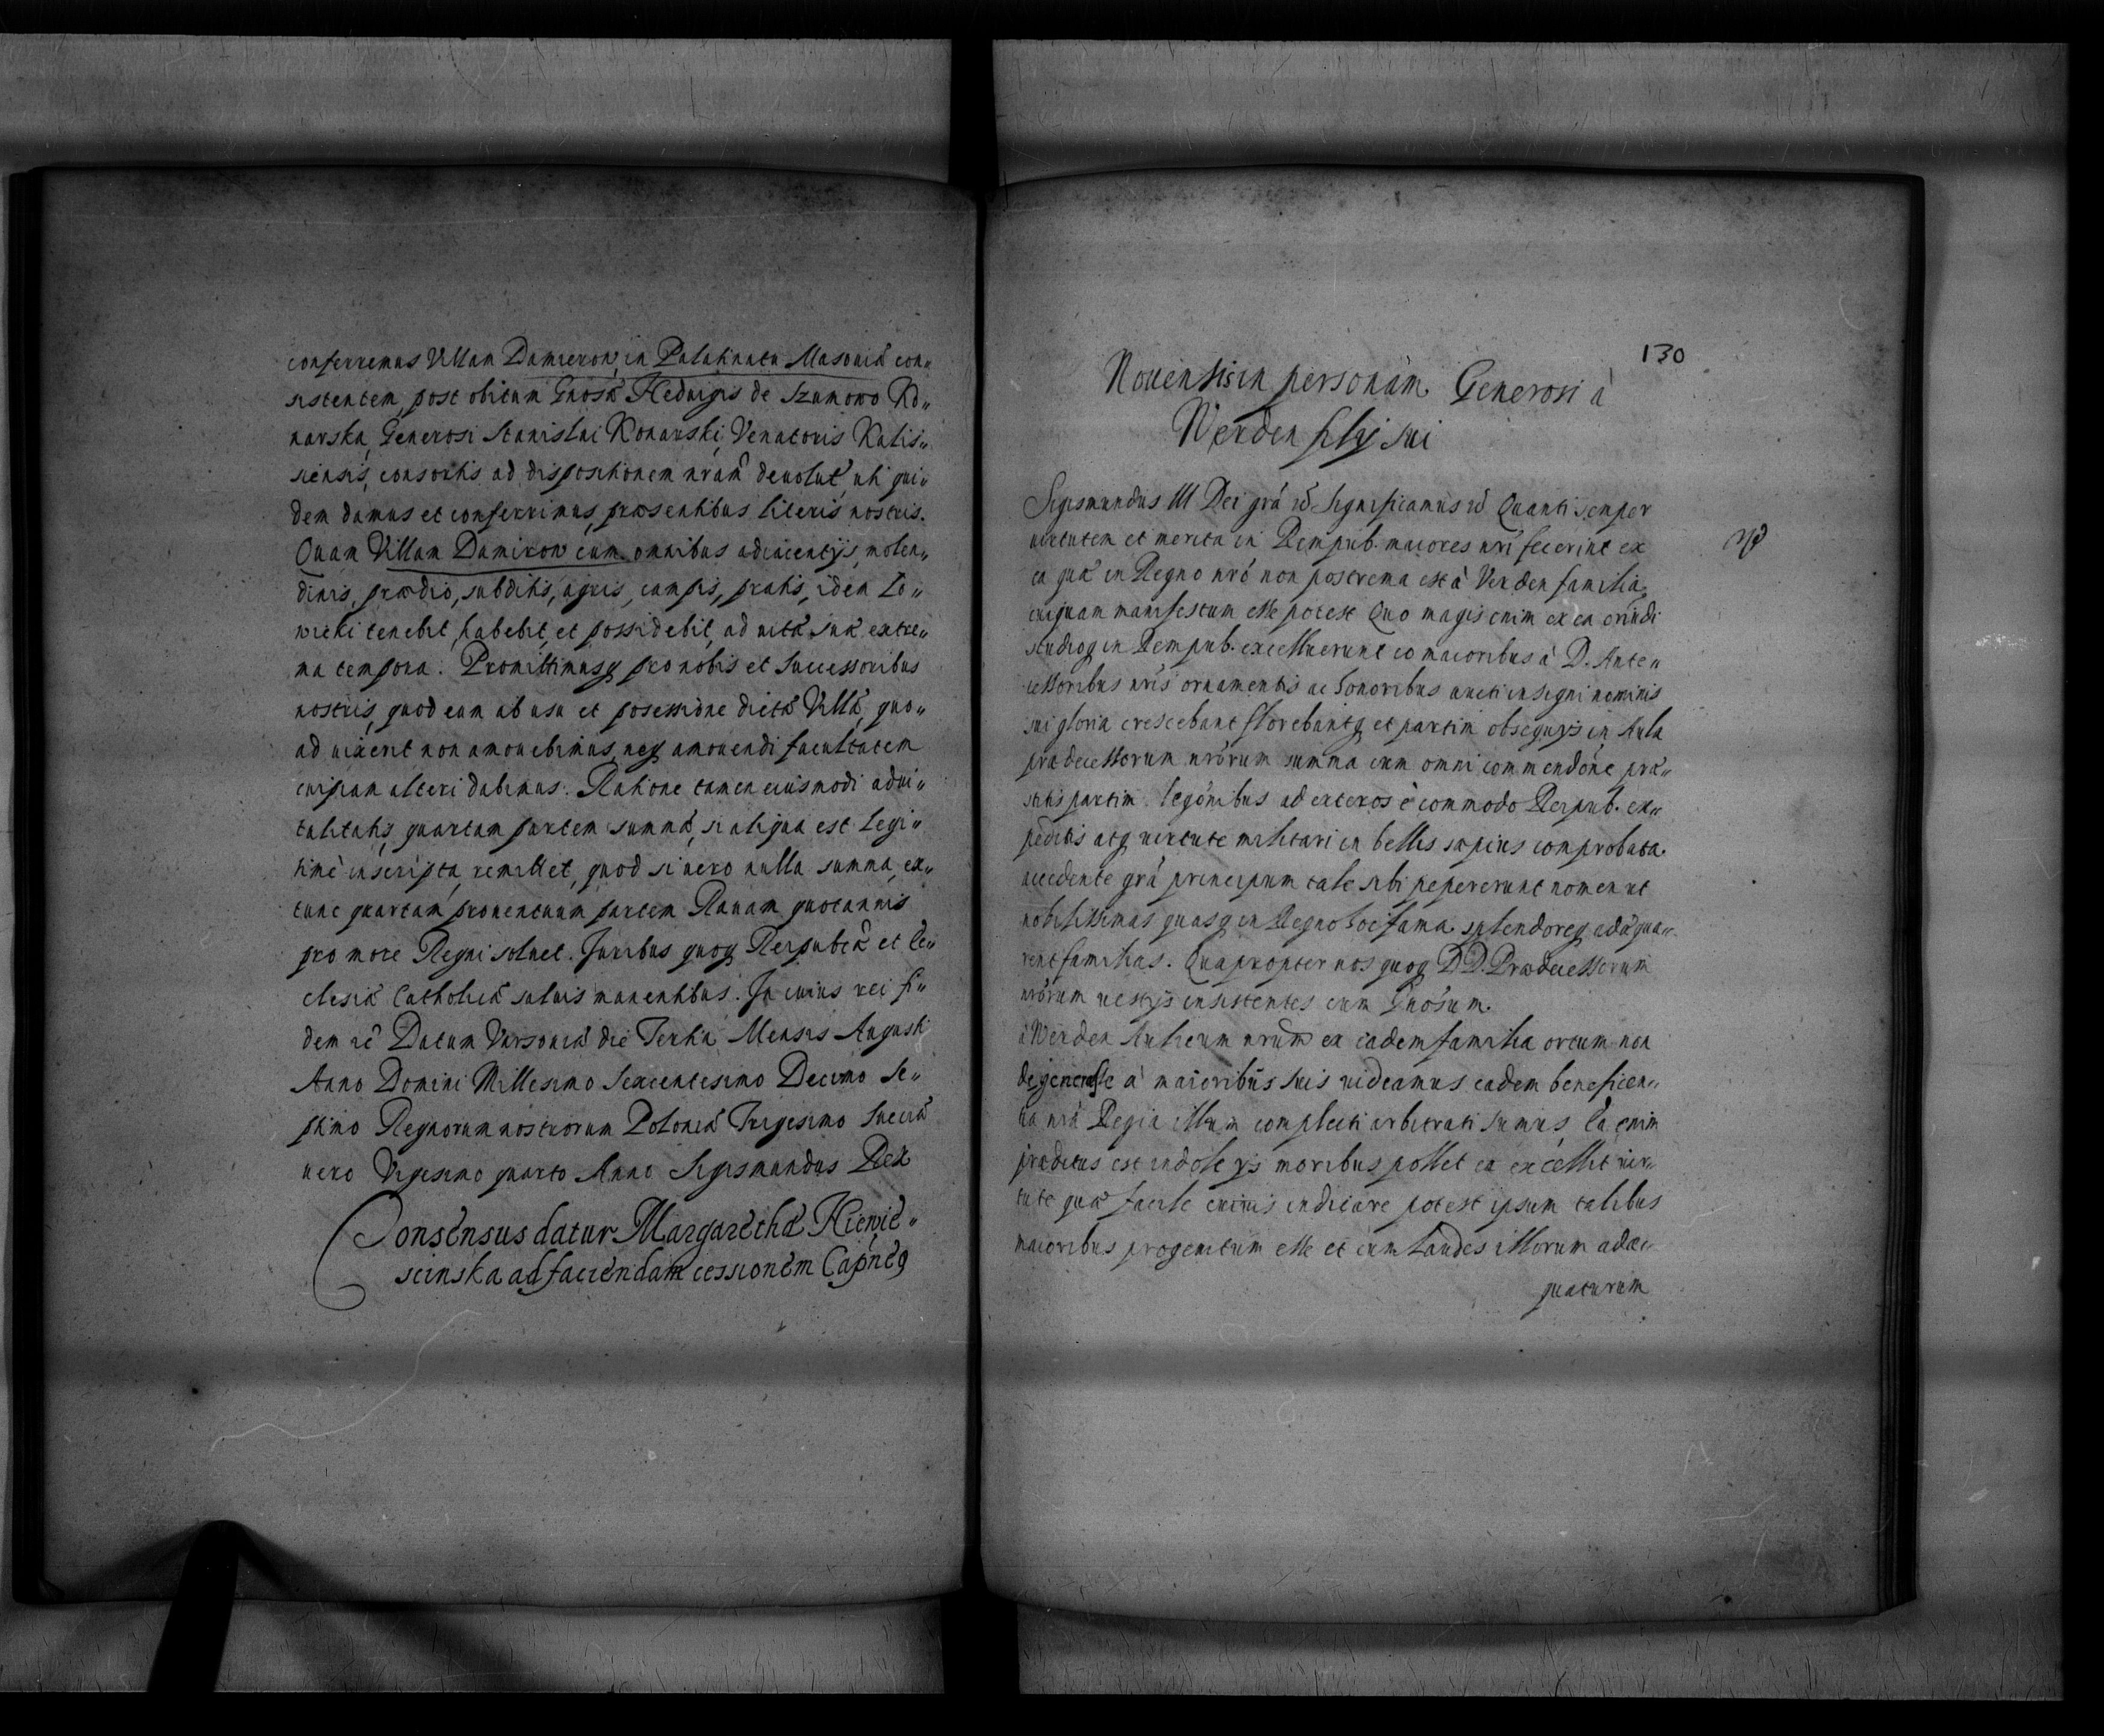 conferremus Villam Damieron, in Palatinatu Masouiæ con„
sistentem, post obitum Gnosæ Heduigis de Szumowo Ko„
narska, Generosi Stanislai Konarski, Venatoris Kalis„
siensis, consortis ad dispositionem nram deuolut, uti qui„
dem damus et conferrimus præsentibus literis nostris.
Quam Villam Damiron cum omnibus adiacentijs, molen„
dinis, prædio, subditis, agris, campis, pratis, idem Lo„
wicki tenebit, habebit, et possidebit, ad uitæ suæ extre„
ma tempora. Promittimusq pro nobis et Successoribus
nostris, quod eum ab usu et posessione dictæ Villæ, quo„
ad uixerit non amouebimus, neq amouendi facultatem
cuipiam alteri dabimus. Ratione tamen eiusmodi adui„
talitatis, quartam partem summæ, si aliqua est legi„
timè inscripta, remittet, quod si uero nulla summa, ex„
tunc quartam prouentuum partem Rauam quotannis
pro more Regni soluet. Juribus quoq Reipublcæ et Ec„
clesiæ Catholicæ saluis manentibus. In cuius rei fi„
dem rc Datum Varsouiæ die Tertia Mensis Augusti
Anno Domini Millesimo Sexcentesimo Decimo Se„
ptimo Regnorum nostrorum Poloniæ Trigesimo Sueciæ
uero Vigesimo quarto Anno Sigismundus Rex
Consensus datur Margarethæ Kiewie„
scinska ad faciendam cessionem Capneq
130
Nouensis in personam Generosi à
Werden filij sui
Sigismundus III Dei grã rc Significamus rc Quanti semper
uirtutem et merita in Rempub. maiores nri fecerint ex
ea quæ in Regno nro non postrema est à Verden familia,
cuiquam manifestum esse potest Quo magis enim ex ea oriundi
studioq in Rempub. excelluerunt eo maioribus à D. Ante„
cessoribus nris ornamentis ac honoribus aucti insigni nominis
sui gloria crescebant florebantq et partim obsequijs in Aula
prædecessorum nrorum summa cum omni commendone præ„
stitis partim legonibus ad exteros è commodo Reipub. ex„
peditis atq uirtute militari in bellis sæpius comprobata
accedente grã principum tale sibi pepererunt nomen ut
nobilissimas quasq in Regno hoc fama splendoreq adæqua„
rent familias. Quapropter nos quoq D D. Prædecessorum
nrorum uestijs insistentes cum Gnosum
à Werden Aulicum nrum ex eadem familia ortum non
degenerasse à maioribus suis uideamus eadem beneficen„
tia nra Regia illum complecti arbitrati sumus, Ea enim
præditus est indole ijs moribus pollet ea excellit uir„
tute quæ facile cuiuis indicare potest ipsum talibus
maioribus progenitum esse et cum Laudes illorum adæ„
quaturum